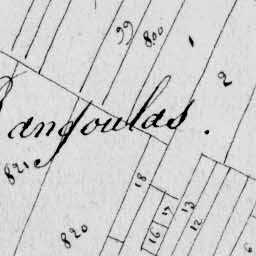 99
800
1
2
angoulas.
821
820
18
17
16
13
12
6